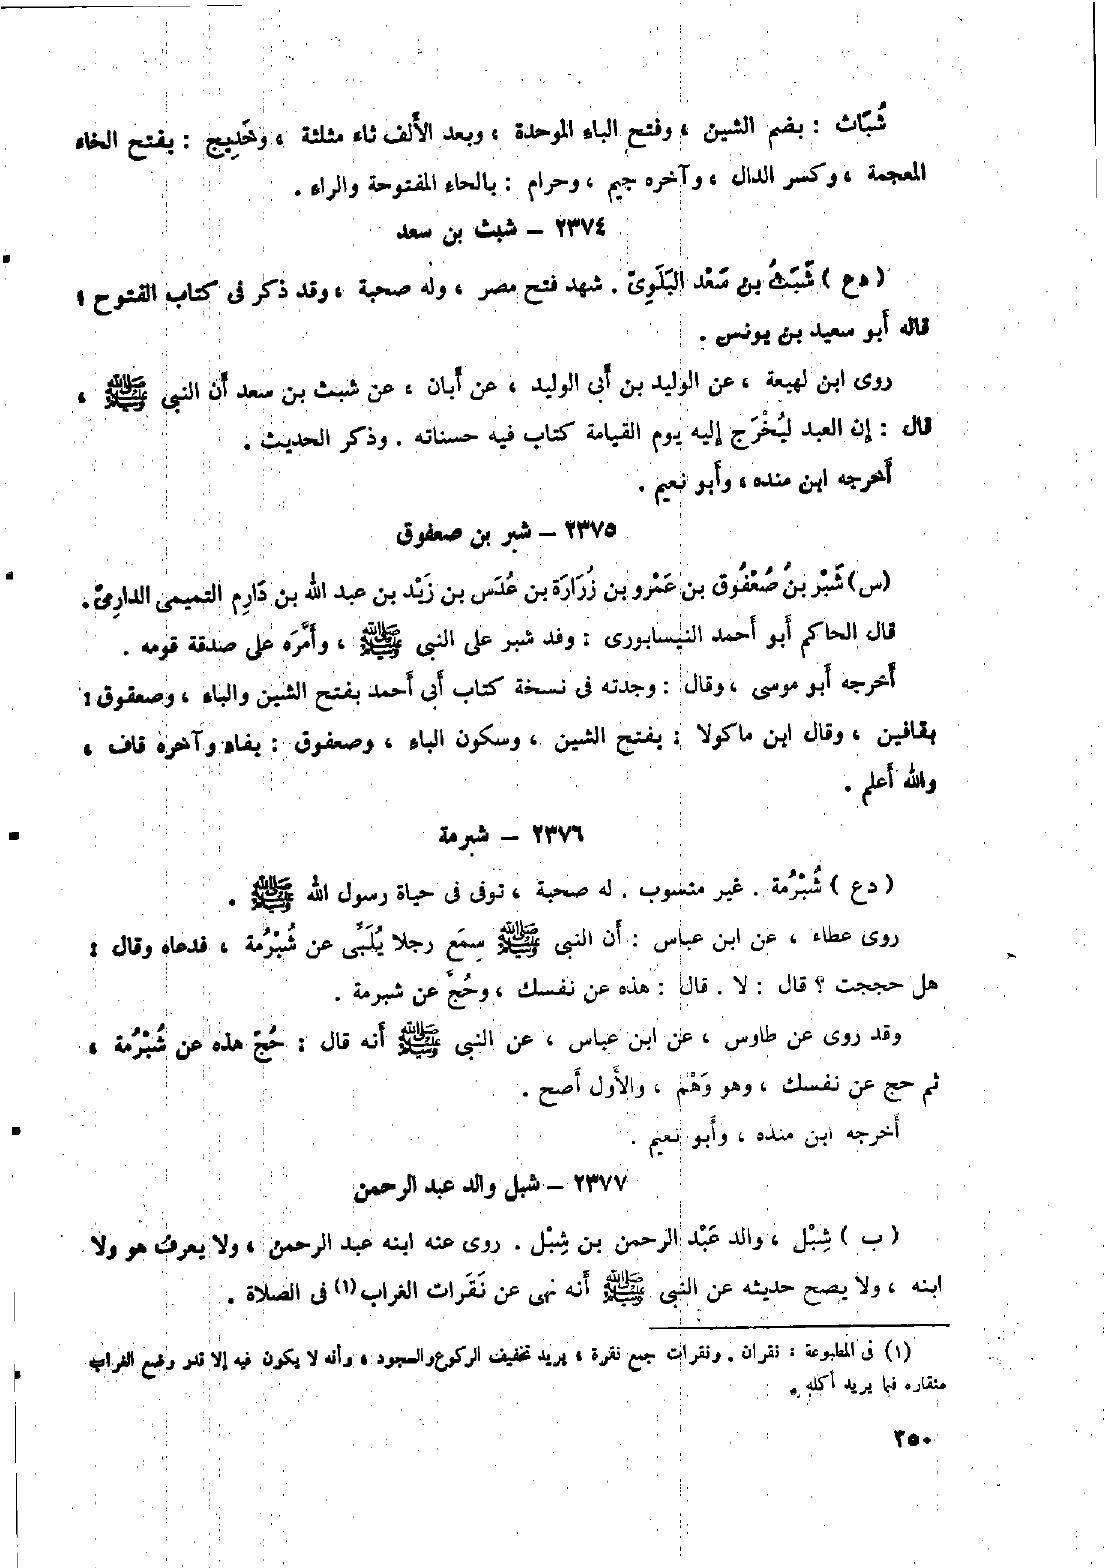 شُبَاث : بضم الشين ، وفتح الباء الموحدة ، وبعد الألف ثاء مثلثة ، وخَدِيج : بفتح الخاء
المعجمة ، وكسر الدال ، وآخره جيم ، وحرام : بالحاء المفتوحة والراء .
٢٣٧٤ – شبث بن سعد
( دع ) شَبَثُ بن سَعْد البَلَوِىّ . شهد فتح مصر ، وله صحبة ، وقد ذكر فى كتاب الفتوح ؛
قاله أبو سعيد بن يونس .
روى ابن لهيعة ، عن الوليد بن أبى الوليد ، عن أبان ، عن شبث بن سعد أن النبى ﷺ ،
قال : إن العبد ليُخْرَج إليه يوم القيامة كتاب فيه حسناته . وذكر الحديث .
أخرجه ابن منده ، وأبو نعيم .
٢٣٧٥ – شبر بن صعفوق
(س) شَبْر بنُ صُعْفُوق بن عَمْرو بن زُرَارَة بن عُدَس بن زَيْد بن عبد الله بن دَارِم التميمى الدارِمىّ .
قال الحاكم أبو أحمد النيسابورى : وفد شبر على النبى ﷺ ، وأَمَّرَه على صدقة قومه .
أخرجه أبو موسى ، وقال : وجدته فى نسخة كتاب أبى أحمد بفتح الشين والباء ، وصعقوق :
بقافين ، وقال ابن ماكولا : بفتح الشين ، وسكون الباء ، وصعفوق : بفاء وآخره قاف ،
والله أعلم .
٢٣٧٦ – شبرمة
( دع ) شُبْرُمة . غير منسوب . له صحبة ، توفى فى حياة رسول الله ﷺ .
روى عطاء ، عن ابن عباس : أن النبى ﷺ سِمَع رجلا يُلَبِّى عن شُبْرُمة ، فدعاه وقال :
هل حججت ؟ قال : لا . قال : هذه عن نفسك ، وحُجَّ عن شبرمة .
وقد روى عن طاوس ، عن ابن عباس ، عن النبى ﷺ أنه قال : حُجّ هذه عن شُبْرُمة ،
ثم حج عن نفسك ، وهو وَهْم ، والأول أصح .
أخرجه ابن منده ، وأبو نعيم .
٢٣٧٧ – شبل والد عبد الرحمن
( ب ) شِبْل ، والد عَبْد الرحمن بن شِبْل . روى عنه ابنه عبد الرحمن ، ولا يعرف هو ولا
ابنه ، ولا يصح حديثه عن النبى ﷺ أنه نهى عن نَقَرات الغراب (١) فى الصلاة .
(١) فى المطبوعة : نقران . ونقرات جمع نقرة ، يريد تخفيف الركوع والسجود ، وأنه لا يكون فيه إلا قدر وضع الغراب
منقاره فيما يريد أكله .
٢٥٠